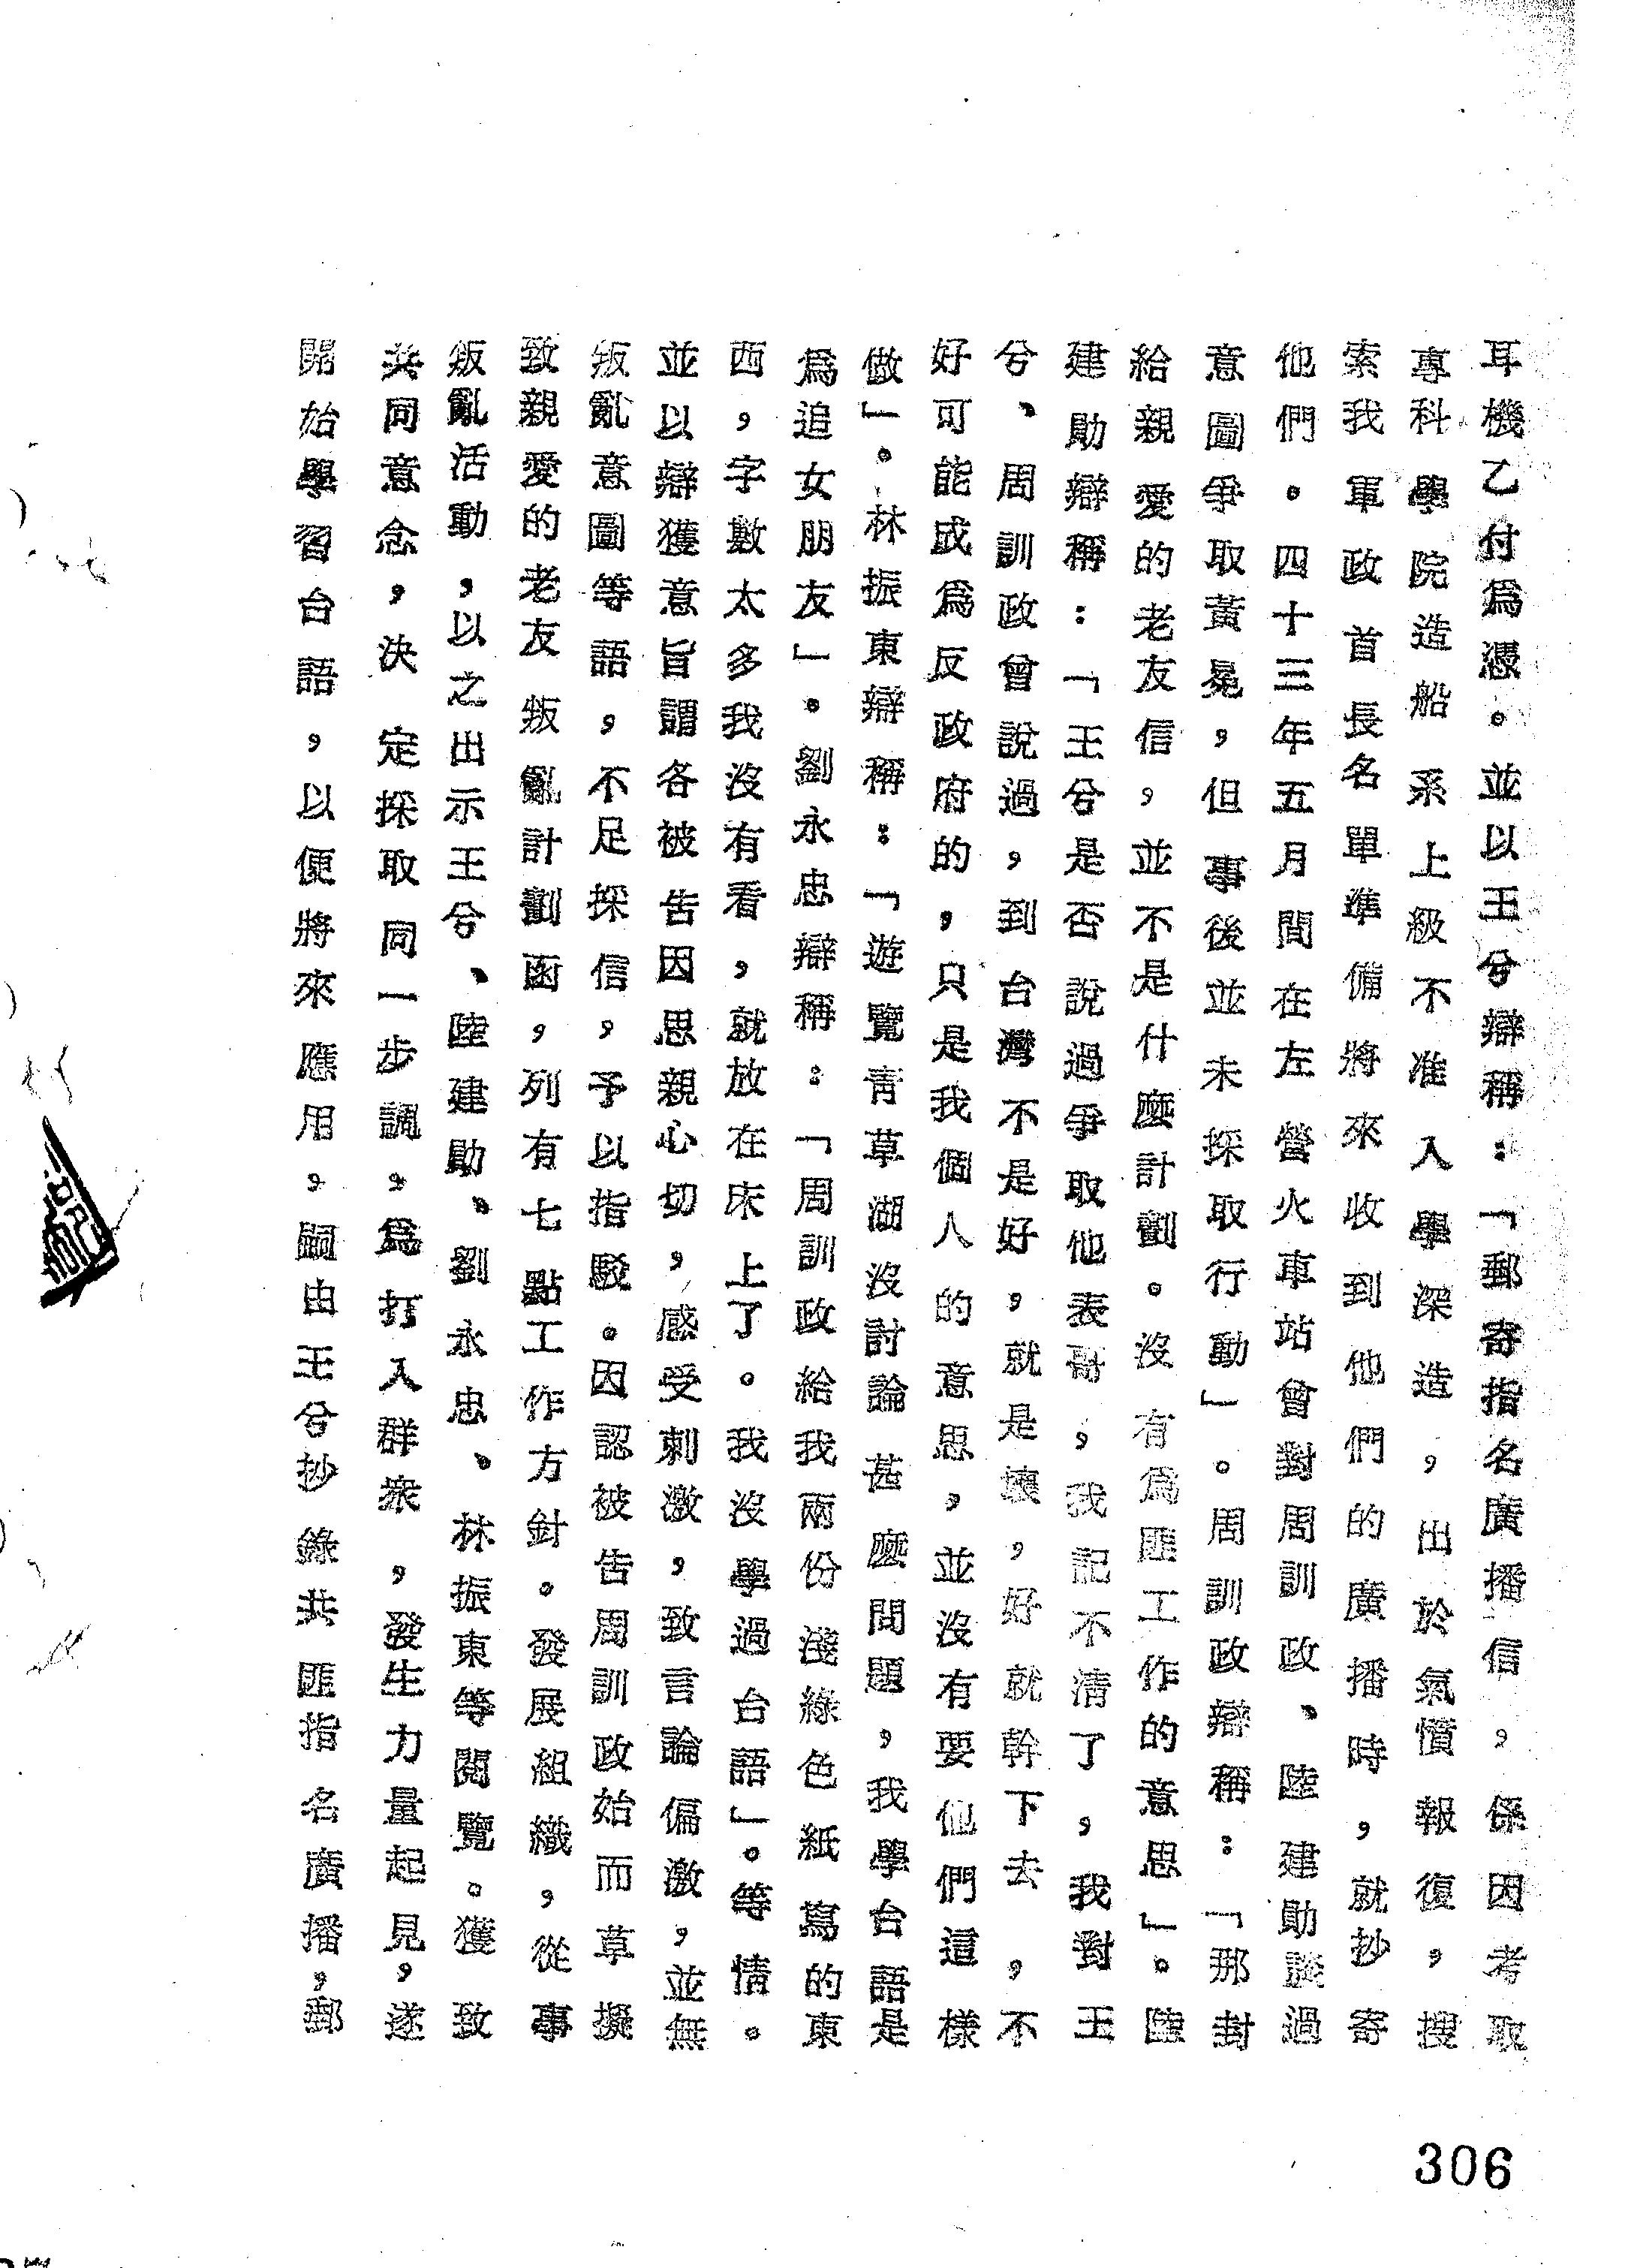 耳機乙付爲憑。並以王兮辯稱：「郵寄指名廣播信，係因考取
專科學院造船系上級不准入學深造，出於氣憤報復，搜
索我軍政首長名單準備將來收到他們的廣播時，就抄寄
他們。四十三年五月間在左營火車站曾對周訓政、陸建勛談過
意圖爭取黃晃，但事後並未採取行動」。周訓政辯稱：「那封
給親愛的老友信，並不是什麼計劃。沒有爲匪工作的意思」。陸
建勛辯稱：「王兮是否說過爭取他表哥，我記不清了，我對王
兮、周訓政曾說過，到台灣不是好，就是壞，好就幹下去，不
好可能成爲反政府的，只是我個人的意思，並沒有要他們這樣
做」。林振東辯稱：「遊覽青草湖沒討論甚麼問題，我學台語是
爲追女朋友」。劉永忠辯稱：「周訓政給我兩份淺綠色紙寫的東
西，字數太多我沒有看，就放在床上了。我沒學過台語」。等情。
並以辯獲意旨謂各被告因思親心切，感受刺激，致言論偏激，並無
叛亂意圖等語，不足採信，予以指駁。因認被告周訓政始而草擬
致親愛的老友叛亂計劃函，列有七點工作方針。發展組織，從事
叛亂活動，以之出示王兮、陸建勛、劉永忠、林振東等閱覽。獲致
共同意念，決定採取同一步調。爲打入群衆，發生力量起見，遂
開始學習台語，以便將來應用。嗣由王兮抄錄共匪指名廣播，郵
306